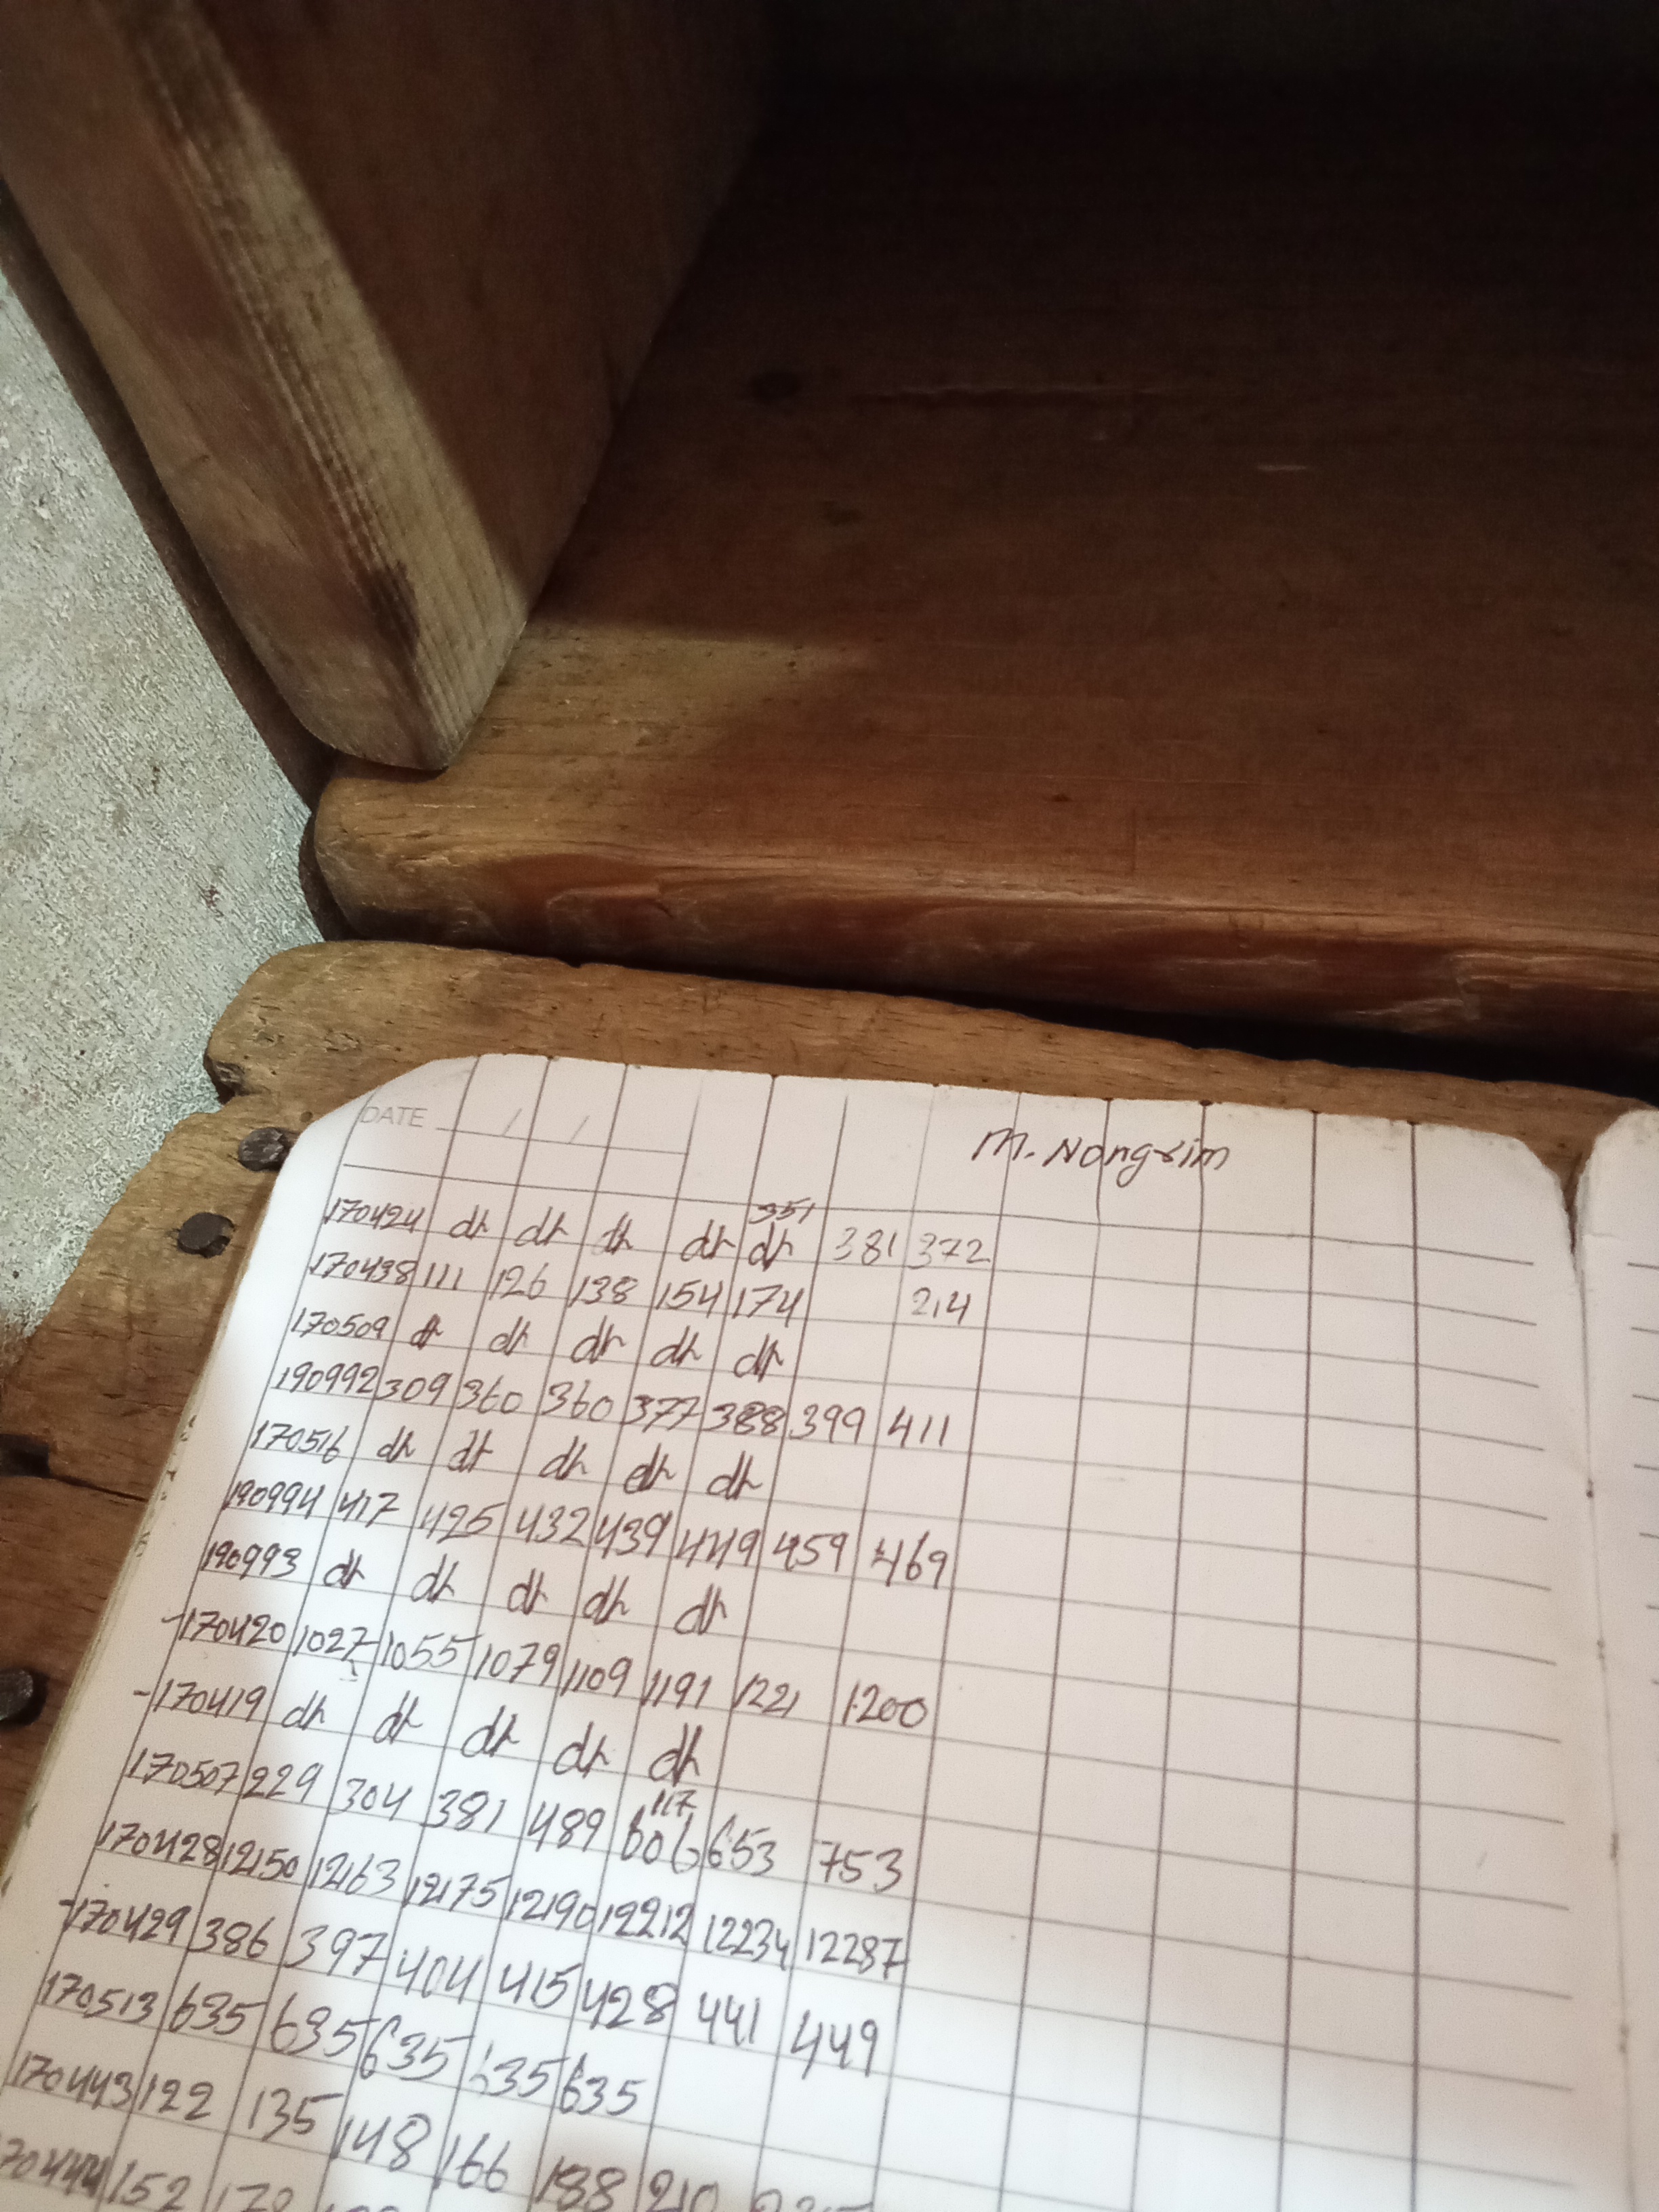 DATE / /
M. Nongrim
351
170424 dr dr dr dr dr 381 372
170438 111 126 138 154 174 214
170509 dr dr dr dr dr
190992 309 360 360 377 388 399 411
170516 dr dr dr dr dr
190994 417 425 432 439 449 459 469
190993 dr dr dr dr dr
-170420 1027 1055 1079 1109 1191 1221 1200
-170419 dr dr dr dr dr
117
170507 229 304 381 489 606 653 753
170428 12150 12163 12175 12190 12212 12234 12287
-170429 386 397 404 415 428 441 449
170513 635 635 635 635 635
170443 122 135 148 166 188 210
70444 152